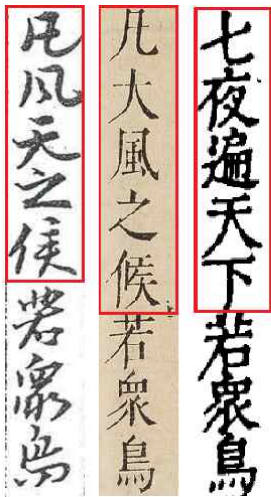 七夜遍天下若衆鳥
凡大風之候若衆鳥
凡风天之候若衆鳥